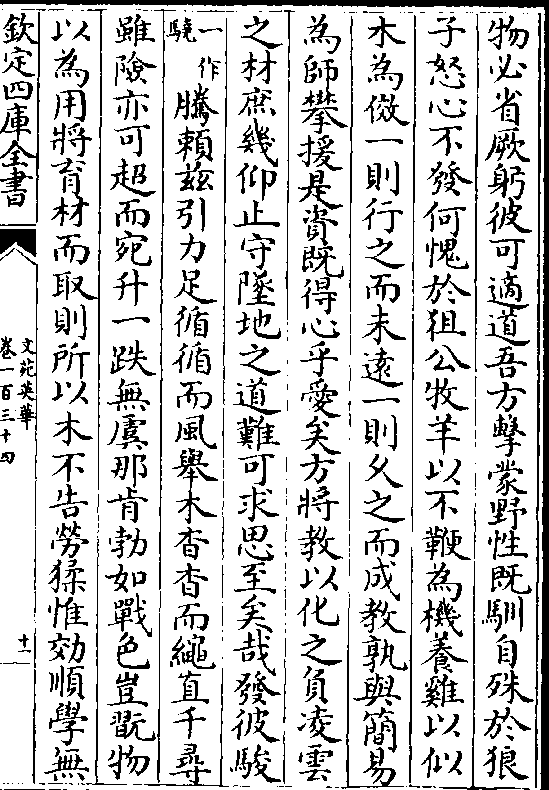 物必省厥躬彼可適道吾方擊蒙野性既馴自殊於狼
子怒心不發何愧於狙公牧羊以不鞭為機養雞以似
木為傚一則行之而未遠一則久之而成教孰與簡易
為師攀援是資既得心乎愛矣方將教以化之負凌雲
之材庶幾仰止守墜地之道難可求思至矣哉發彼駿
一作驍騰頼兹引力足循循而風舉木杳杳而繩直千尋
雖險亦可超而宛升一跌無虞那肯勃如戰色豈翫物
以為用將育材而取則所以木不告勞猱惟効順學無
欽定四庫全書
文苑英華
卷一百三十四
十一